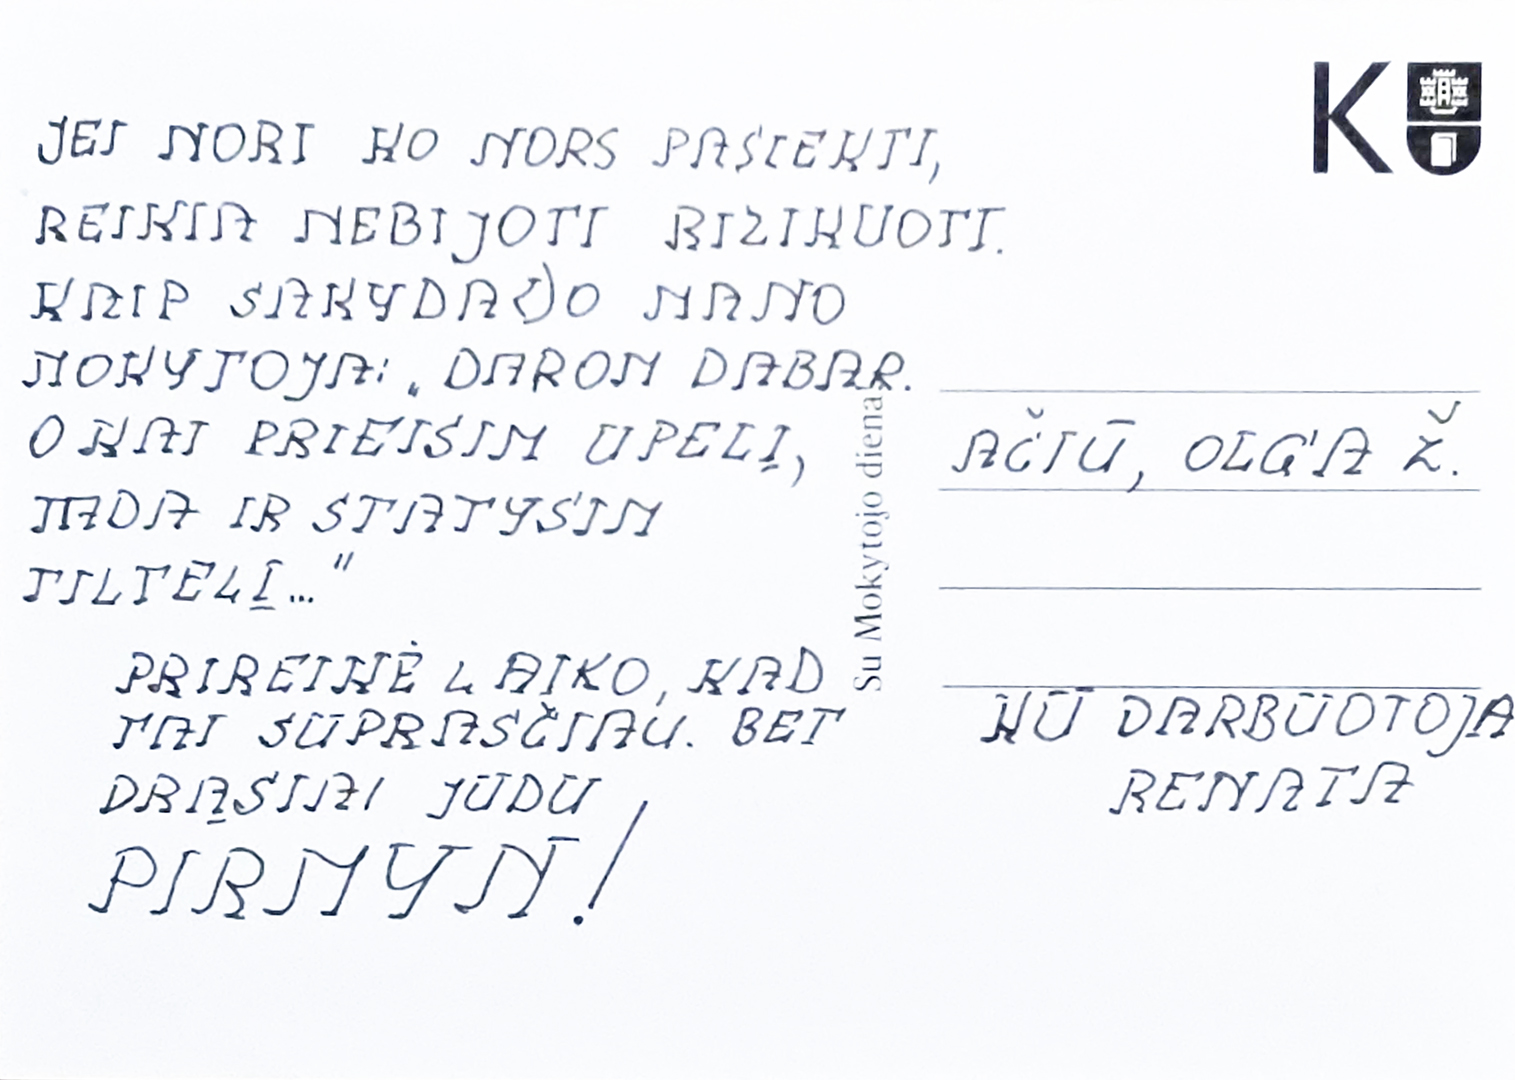 JEI NORI KO NORS PASIEKTI,
REIKIA NEBIJOTI RIZIKUOTI.
KAIP SAKYDAVO MANO
MOKYTOJA: „DAROM DABAR.
O KAI PRIEISIM UPELĮ,
TADA IR STATYSIM
TILTELĮ..."
PRIREIKĖ LAIKO, KAD
TAI SUPRASČIAU. BET
DRĄSIAI JUDU
PIRMYN!
Su Mokytojo diena
KU
AČIŪ, OLGA Ž.
KU DARBUOTOJA
RENATA